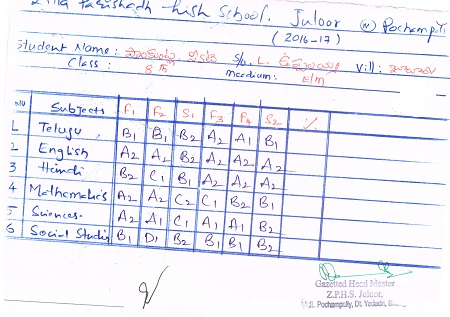 Zilla Parishadh High School. Juloor (M) Pochampally
(2016-17)
Student Name: S/o. L. Vill:
Class: 8th Medium: E/m
NO Subjects F1 F2 S1 F3 F4 S2 %
1 Telugu B1 B1 B2 A2 A1 B1
2 English A2 A2 B2 A2 A2 A2
3 Hindi B2 C1 B1 A2 A2 A2
4 Mathematics A2 A2 C2 C1 B2 B1
5 Sciences A2 A2 C1 A1 A1 B2
6 Social Studies B1 D1 B2 B1 B1 B2
Gazetted Head Master
Z.P.H.S. Juloor,
Pochampally, Dt. Yadadri,